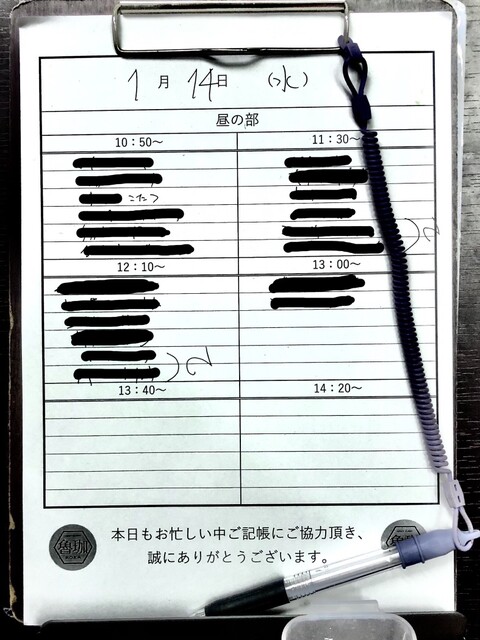 1月14日 (水)
昼の部
10：50～
11：30～
こたつ
2
12：10～
13：00～
2
13：40～
14：20～
本日もお忙しい中ご記帳にご協力頂き、
誠にありがとうございます。